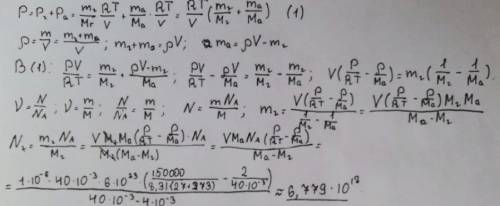 P = P₂ + Pₐ = m₂/M₂ · RT/V + mₐ/Mₐ · RT/V = RT/V (m₂/M₂ + mₐ/Mₐ) (1)
ρ = m/V = (m₂+mₐ)/V ; m₂+mₐ = ρV ; mₐ = ρV - m₂
В (1): PV/RT = m₂/M₂ + (ρV-m₂)/Mₐ ; PV/RT - ρV/Mₐ = m₂/M₂ - m₂/Mₐ ; V(P/RT - ρ/Mₐ) = m₂(1/M₂ - 1/Mₐ)
ν = N/Nₐ ; ν = m/M ; N/Nₐ = m/M ; N = mNₐ/M ; m₂ = V(P/RT - ρ/Mₐ)/(1/M₂ - 1/Mₐ) = V(P/RT - ρ/Mₐ)M₂Mₐ/(Mₐ-M₂)
N₂ = m₂Nₐ/M₂ = VM₂Mₐ(P/RT - ρ/Mₐ)·Nₐ/(M₂(Mₐ-M₂)) = VMₐNₐ(P/RT - ρ/Mₐ)/(Mₐ-M₂) =
= 1·10⁻⁶·40·10⁻³·6·10²³(150000/(8,31(27+273)) - 2/(40·10⁻³))/(40·10⁻³-4·10⁻³) ≈ 6,779·10¹⁸